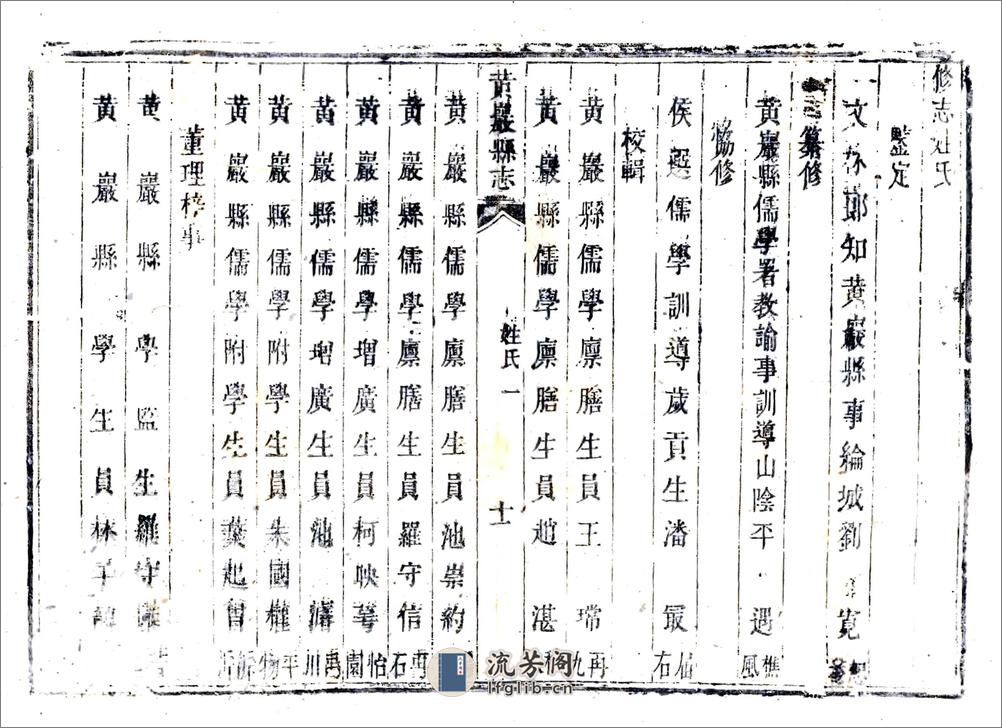 修志姓氏
鑒定
文林郎知黃巖縣事綸城劉寬
纂修
黃巖縣儒學署教諭事訓導山陰平遇樵風
協修
侯選儒學訓導歲貢生潘最仙右
校輯
黃巖縣儒學廩膳生員王瑺再九
黃巖縣儒學廩膳生員趙湛
黃巖縣志
姓氏一
十一
黃巖縣儒學廩膳生員池崇約
黃巖縣儒學廩膳生員羅守信再石
黃巖縣儒學增廣生員柯映萼怡園
黃巖縣儒學增廣生員池濬禹川
黃巖縣儒學附學生員朱國權平物
黃巖縣儒學附學生員葉起曾
董理梓事
黃巖縣學監生羅守
黃巖縣學生員林
流芳阁
lfglib.cn